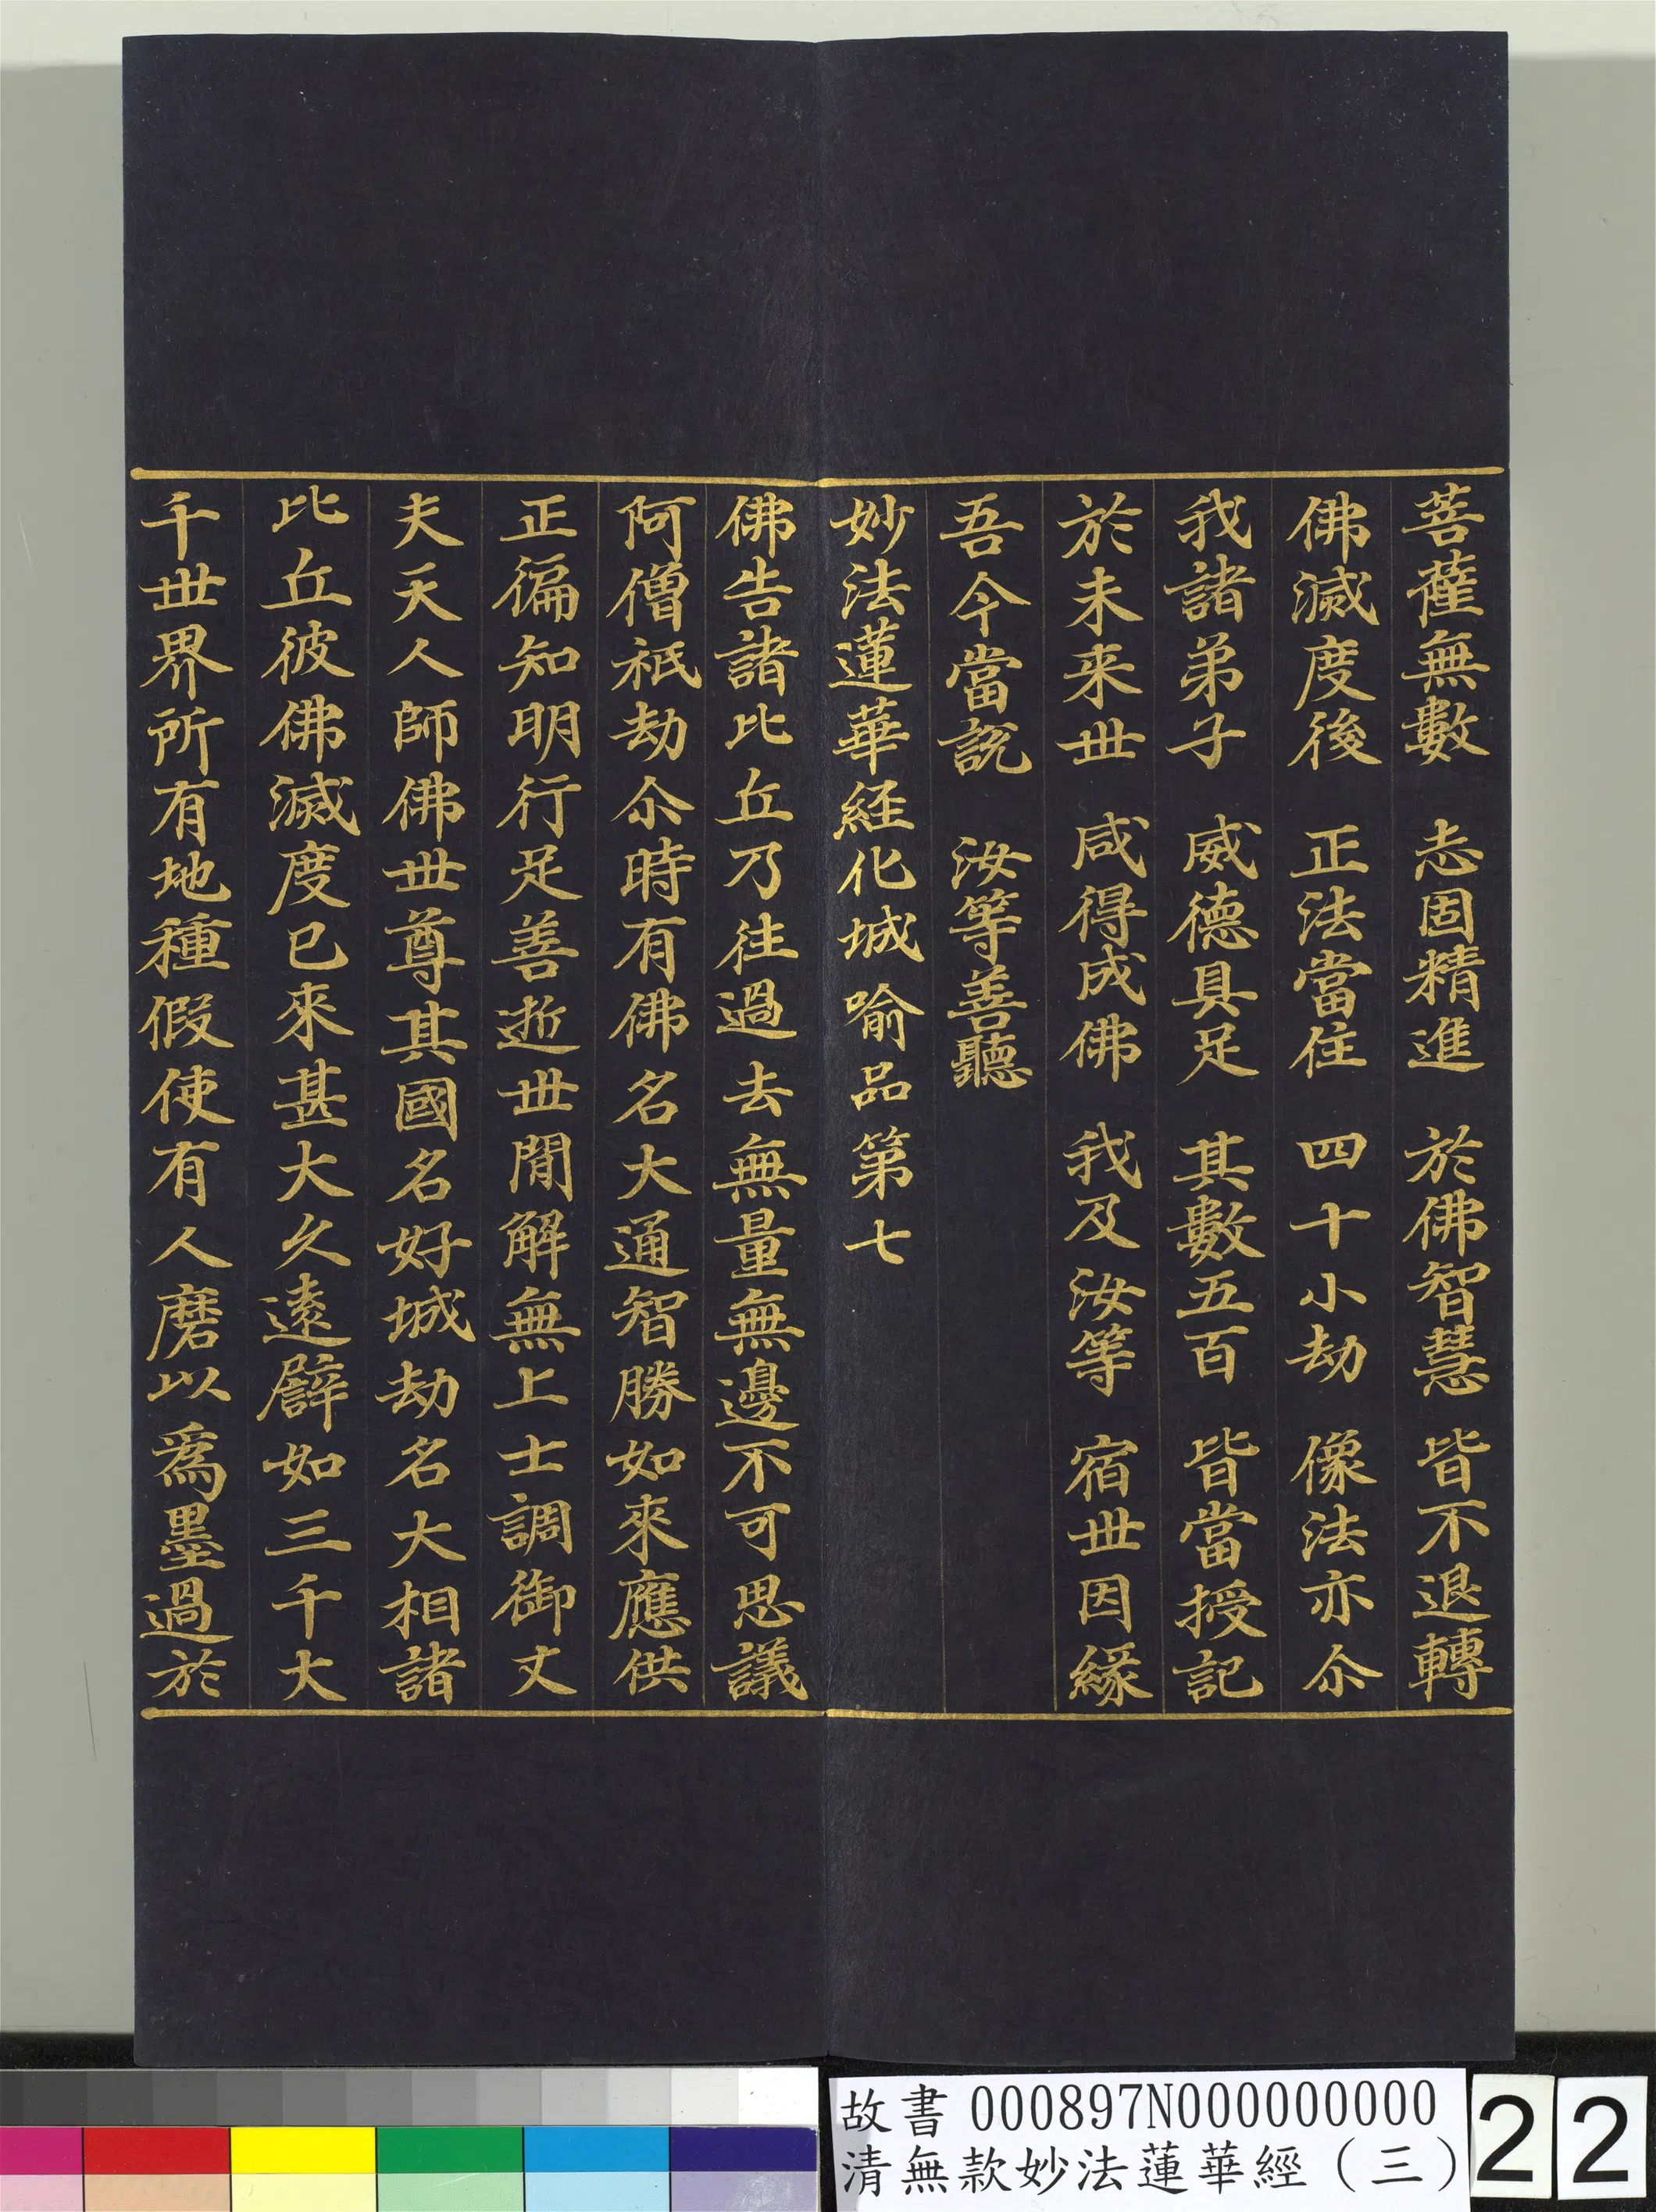 菩薩無數　志固精進　於佛智慧　皆不退轉
佛滅度後　正法當住　四十小劫　像法亦尒
我諸弟子　威德具足　其數五百　皆當授記
於未来世　咸得成佛　我及汝等　宿世因緣
吾今當說　汝等善聽
妙法蓮華経化城喻品第七
佛告諸比丘乃往過去無量無邊不可思議
阿僧祇劫尒時有佛名大通智勝如來應供
正徧知明行足善逝世閒解無上士調御丈
夫天人師佛世尊其國名好城劫名大相諸
比丘彼佛滅度已來甚大久遠譬如三千大
千世界所有地種假使有人磨以為墨過於
故書 000897N000000000
清無款妙法蓮華經（三）
22